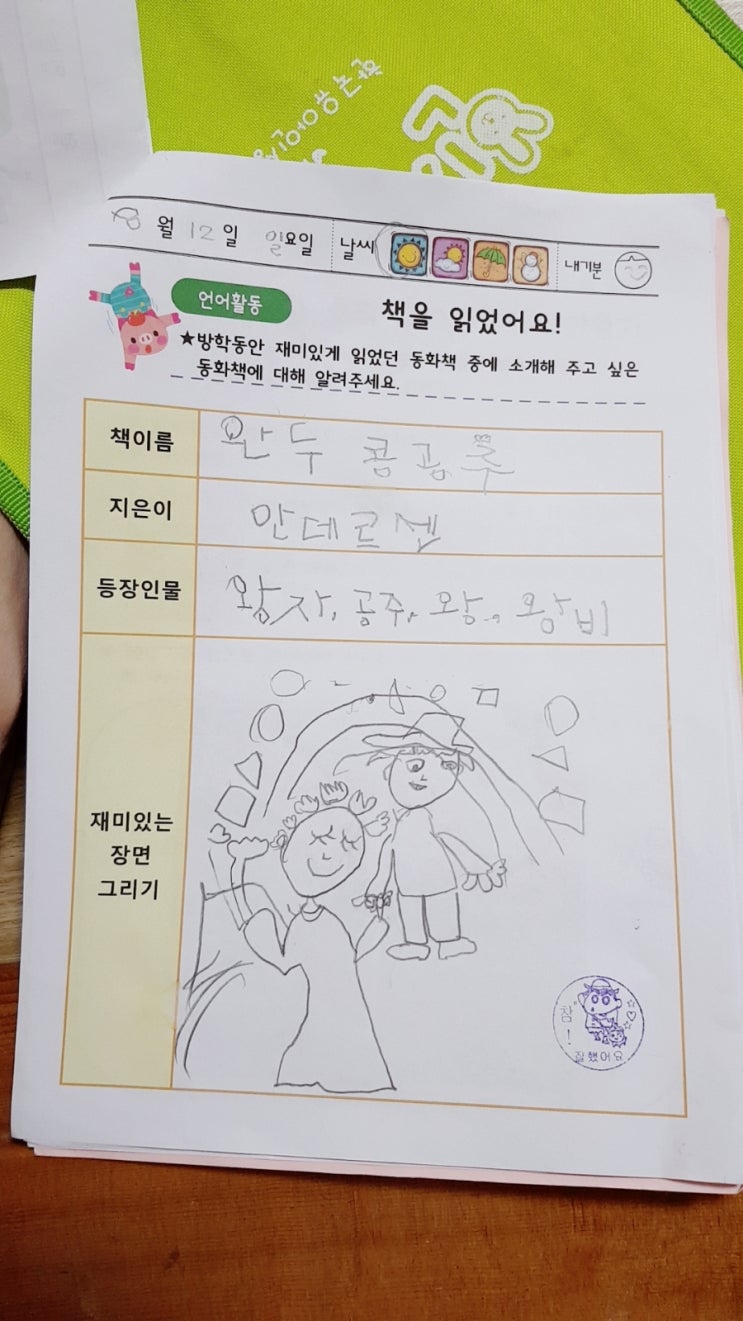 8월 12일 일요일 날씨 내기분
언어활동
책을 읽었어요!
★방학동안 재미있게 읽었던 동화책 중에 소개해 주고 싶은
동화책에 대해 알려주세요.
책이름 완두 콩공주
지은이 안데르센
등장인물 왕자, 공주, 왕, 왕비
재미있는
장면
그리기
참!
잘했어요